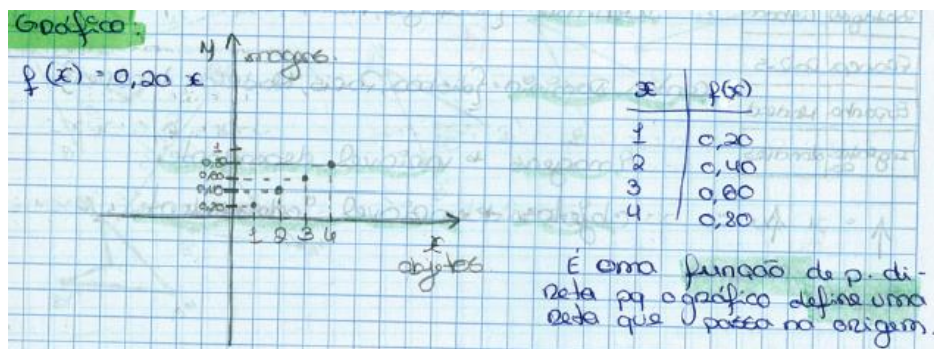 Gráfico:
f(x) = 0,20 x
y imagens
1
0,80
0,60
0,40
0,20
1 2 3 4
x
objetos
x f(x)
1 0,20
2 0,40
3 0,60
4 0,80
É uma função de p. di-
reta pq o gráfico define uma
reta que passa na origem.